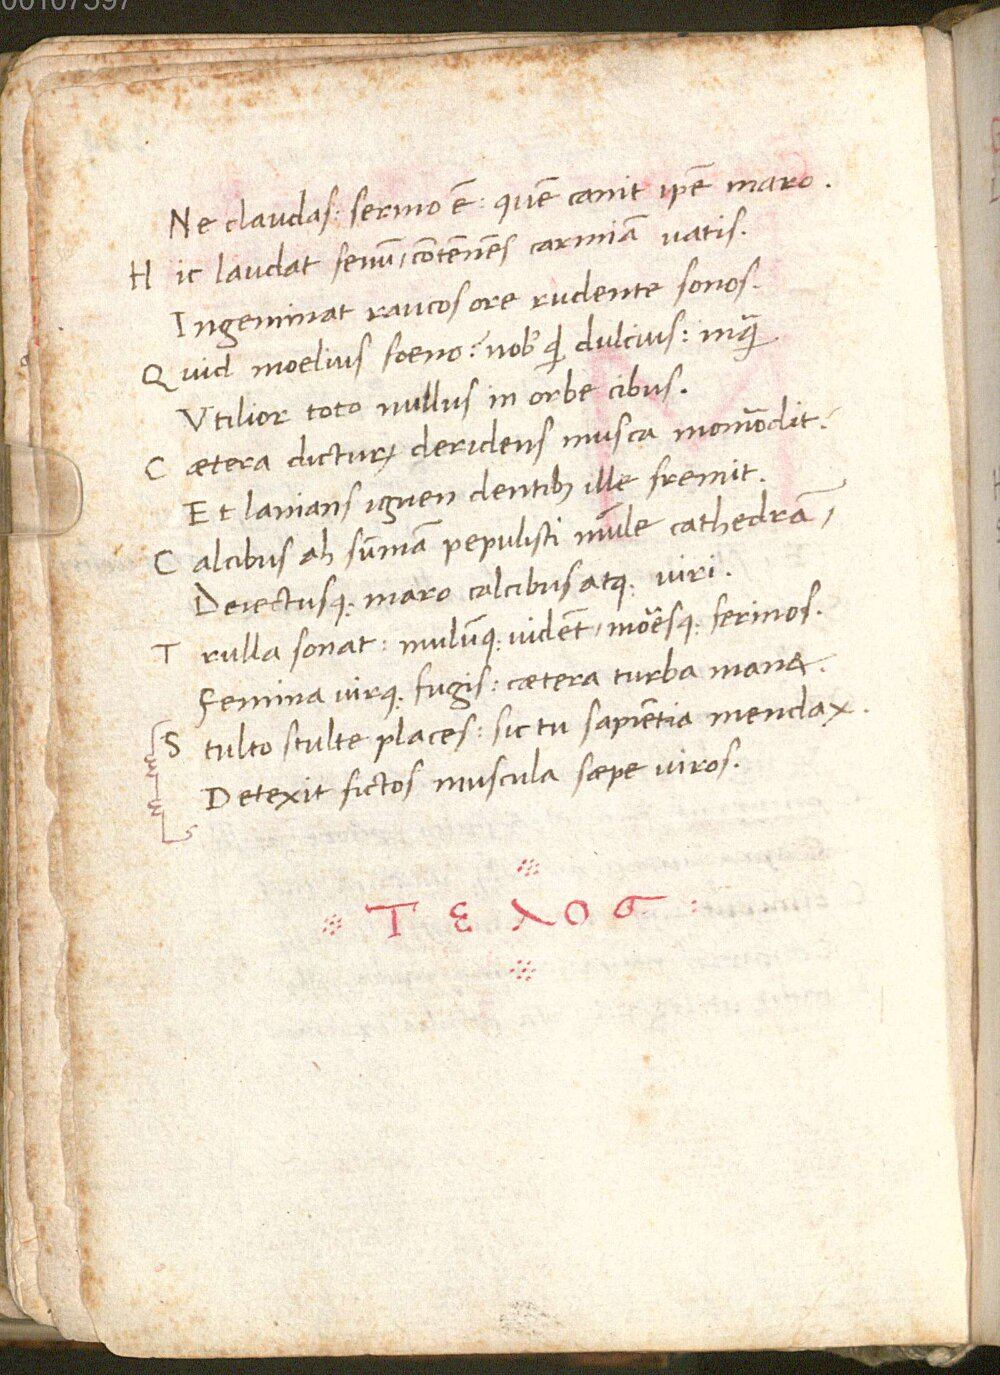 00107397
Ne claudas: sermo ē: quē canit ipē maro.
Hic laudat fenū, cōtēnēs carmīa vatis.
Ingeminat raucos ore rudente sonos.
Quid moelius foeno? nob' qd dulcius: inqt
Vtilior toto nullus in orbe cibus.
Cætera dicturꝝ deridens musca momōdit:
Et lanians iguen dentibꝫ ille fremit.
Calcibus ah sūmā pepulisti mule cathedrā,
Deiectusq. maro calcibus atq. viri.
Trulla sonat: mulūq. vidēt, mōēsq. ferinos.
Femina virq. fugis: cætera turba manet.
Stulto stulte places: sic tu sapiētia mendax.
Detexit fictos muscula sæpe viros.
Τ ε λ ο σ :